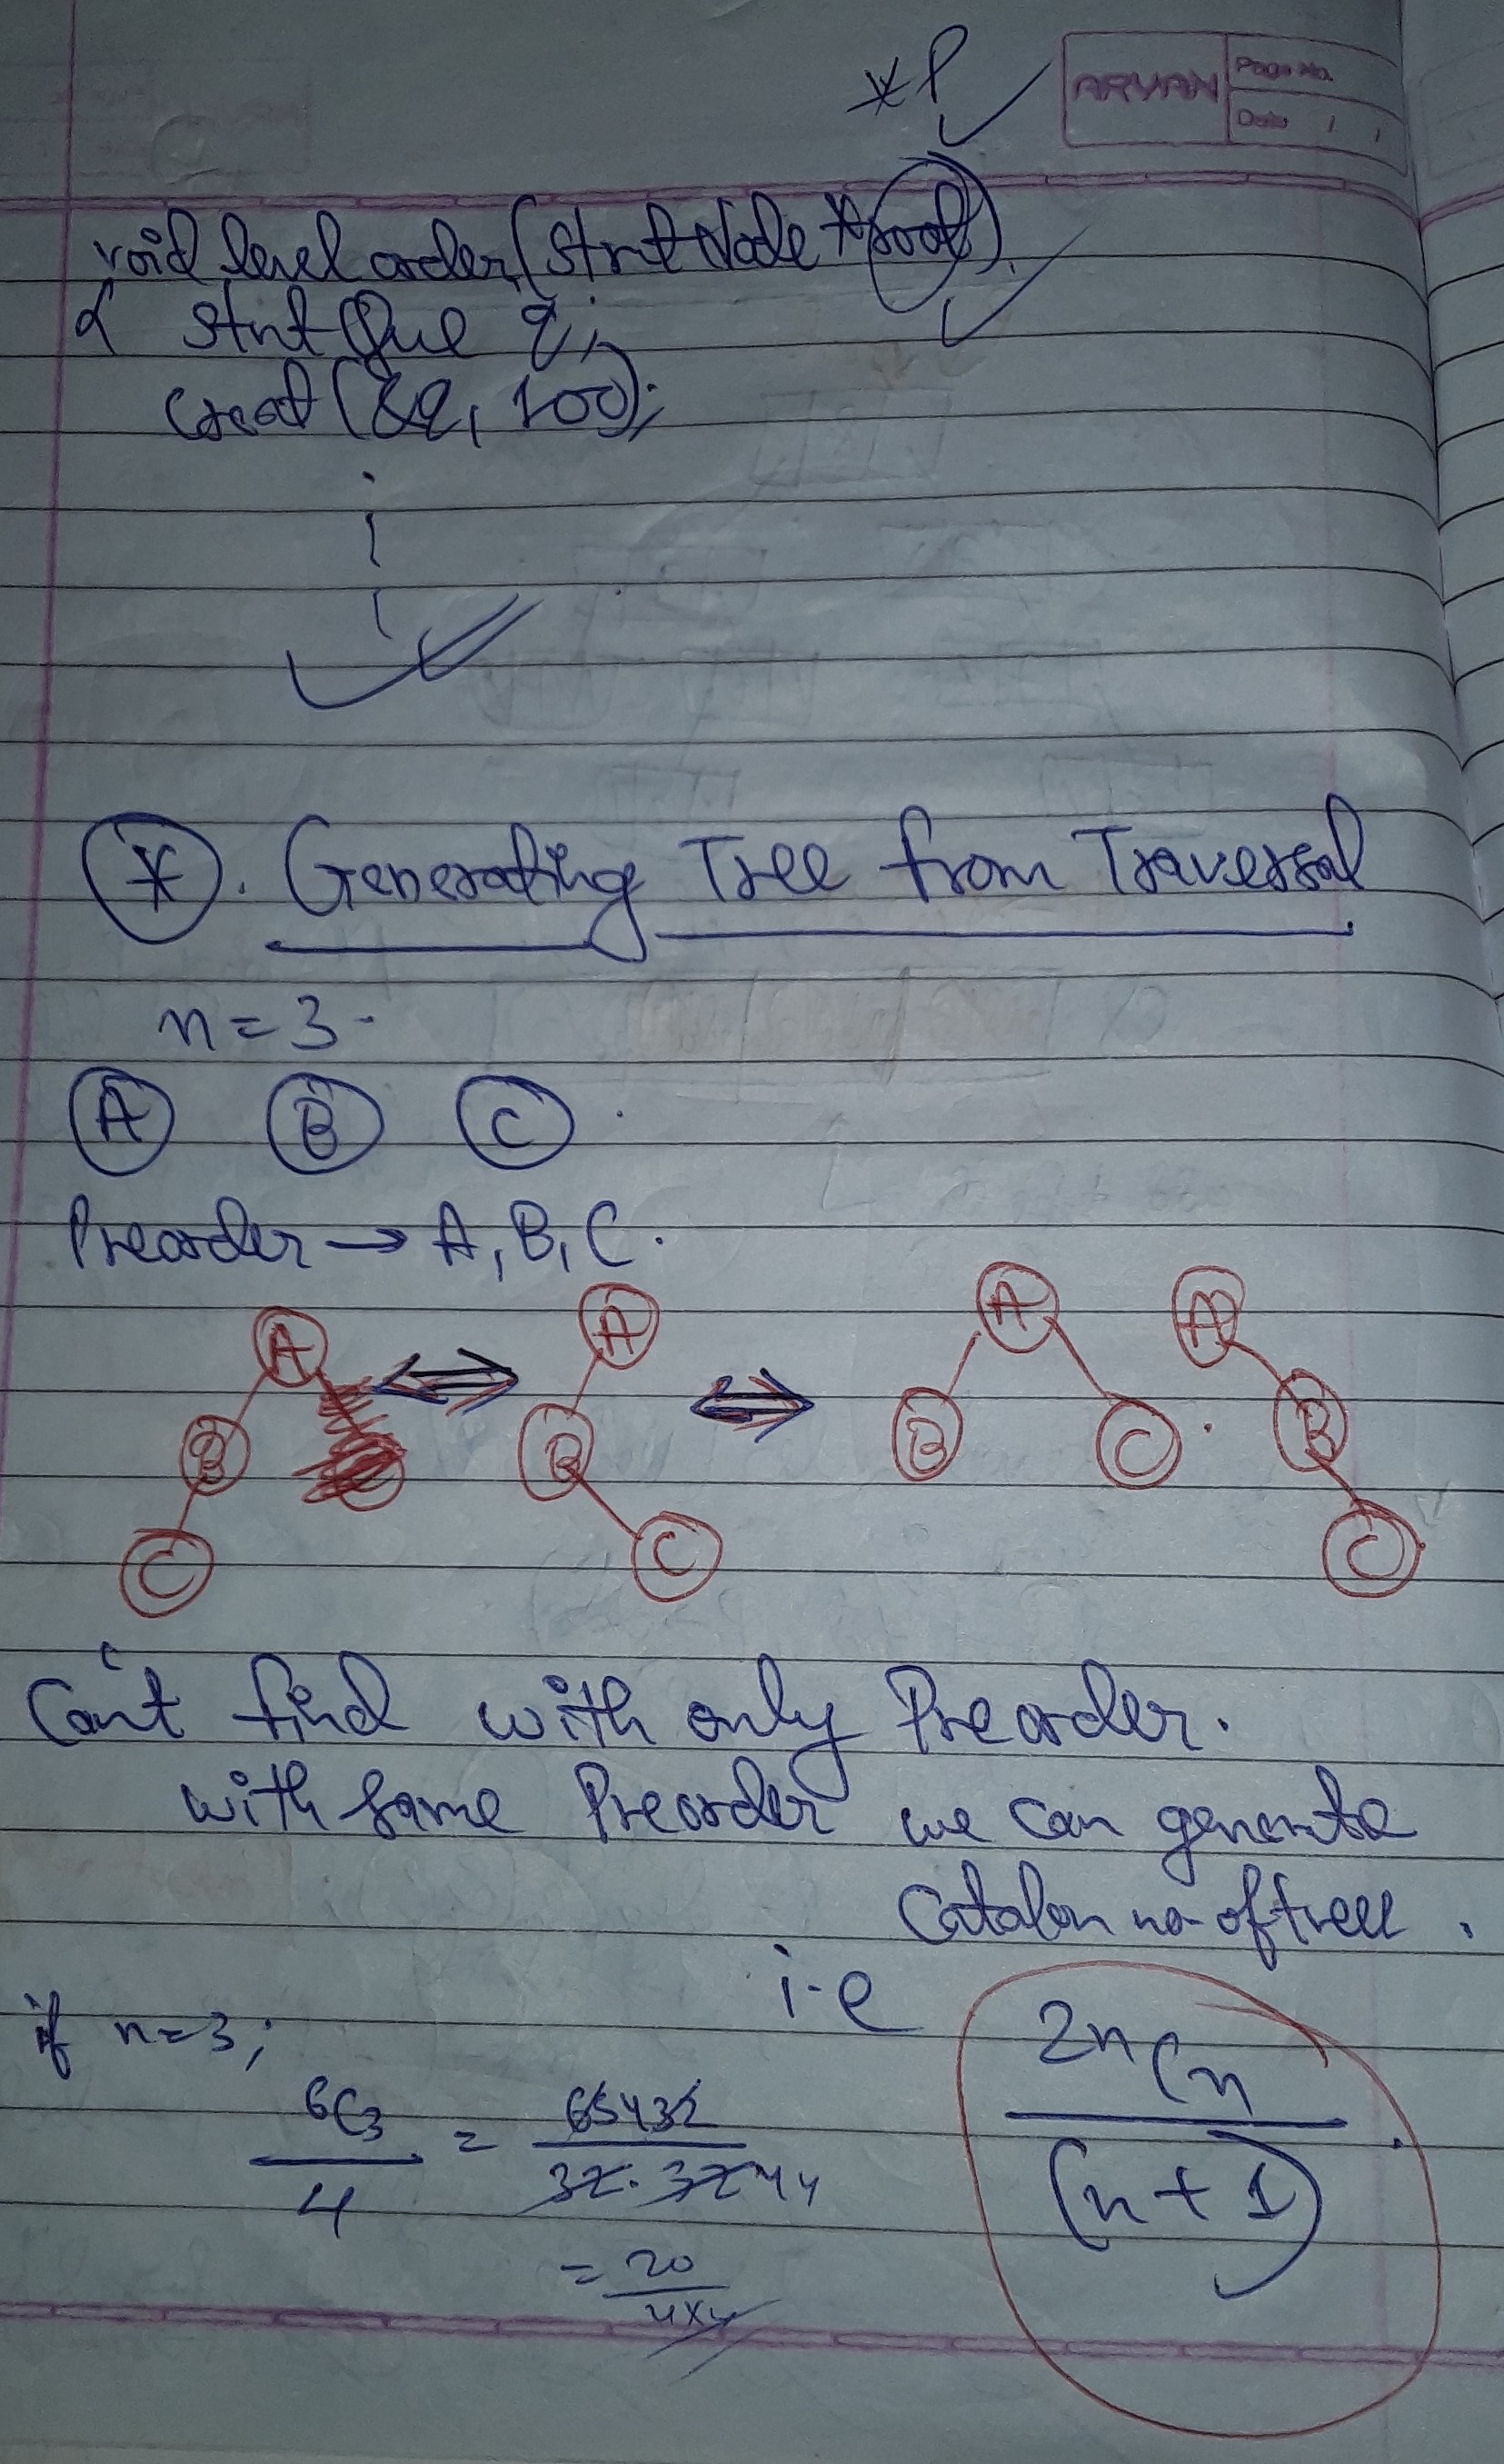 *P
ARYAN
Page No.
Date / /
void level order (Strut Node *root)
{ Strut Que q;
Creat (&q, 100);
*. Generating Tree from Traversal
n = 3.
A B C
Preorder → A, B, C.
A A A A
B B B C B
C C C
Can't find with only Preorder.
with same Preorder we can generate
Catalan no of tree.
i-e
2nCn
(n+1)
if n=3;
6C3 = 65432
4 32.32 44
= 20
4x4